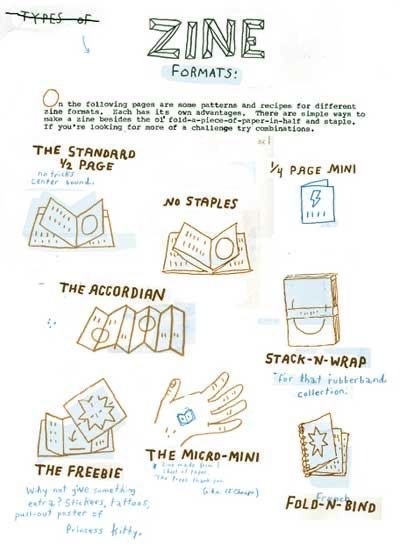 TYPES OF
ZINE
FORMATS:
On the following pages are some patterns and recipes for different
zine formats. Each has its own advantages. There are simple ways to
make a zine besides the ol' fold-a-piece-of-paper-in-half and staple.
If you're looking for more of a challenge try combinations.
THE STANDARD
1/2 PAGE
no tricks
center bound.
NO STAPLES
1/4 PAGE MINI
THE ACCORDIAN
STACK-N-WRAP
"for that rubberband
collection.
THE FREEBIE
Why not give something
extra? Stickers, tattoos,
pull-out poster of
Princess Kitty.
THE MICRO-MINI
zine made from 1
sheet of paper.
The trees thank you.
FOLD-N-BIND
French